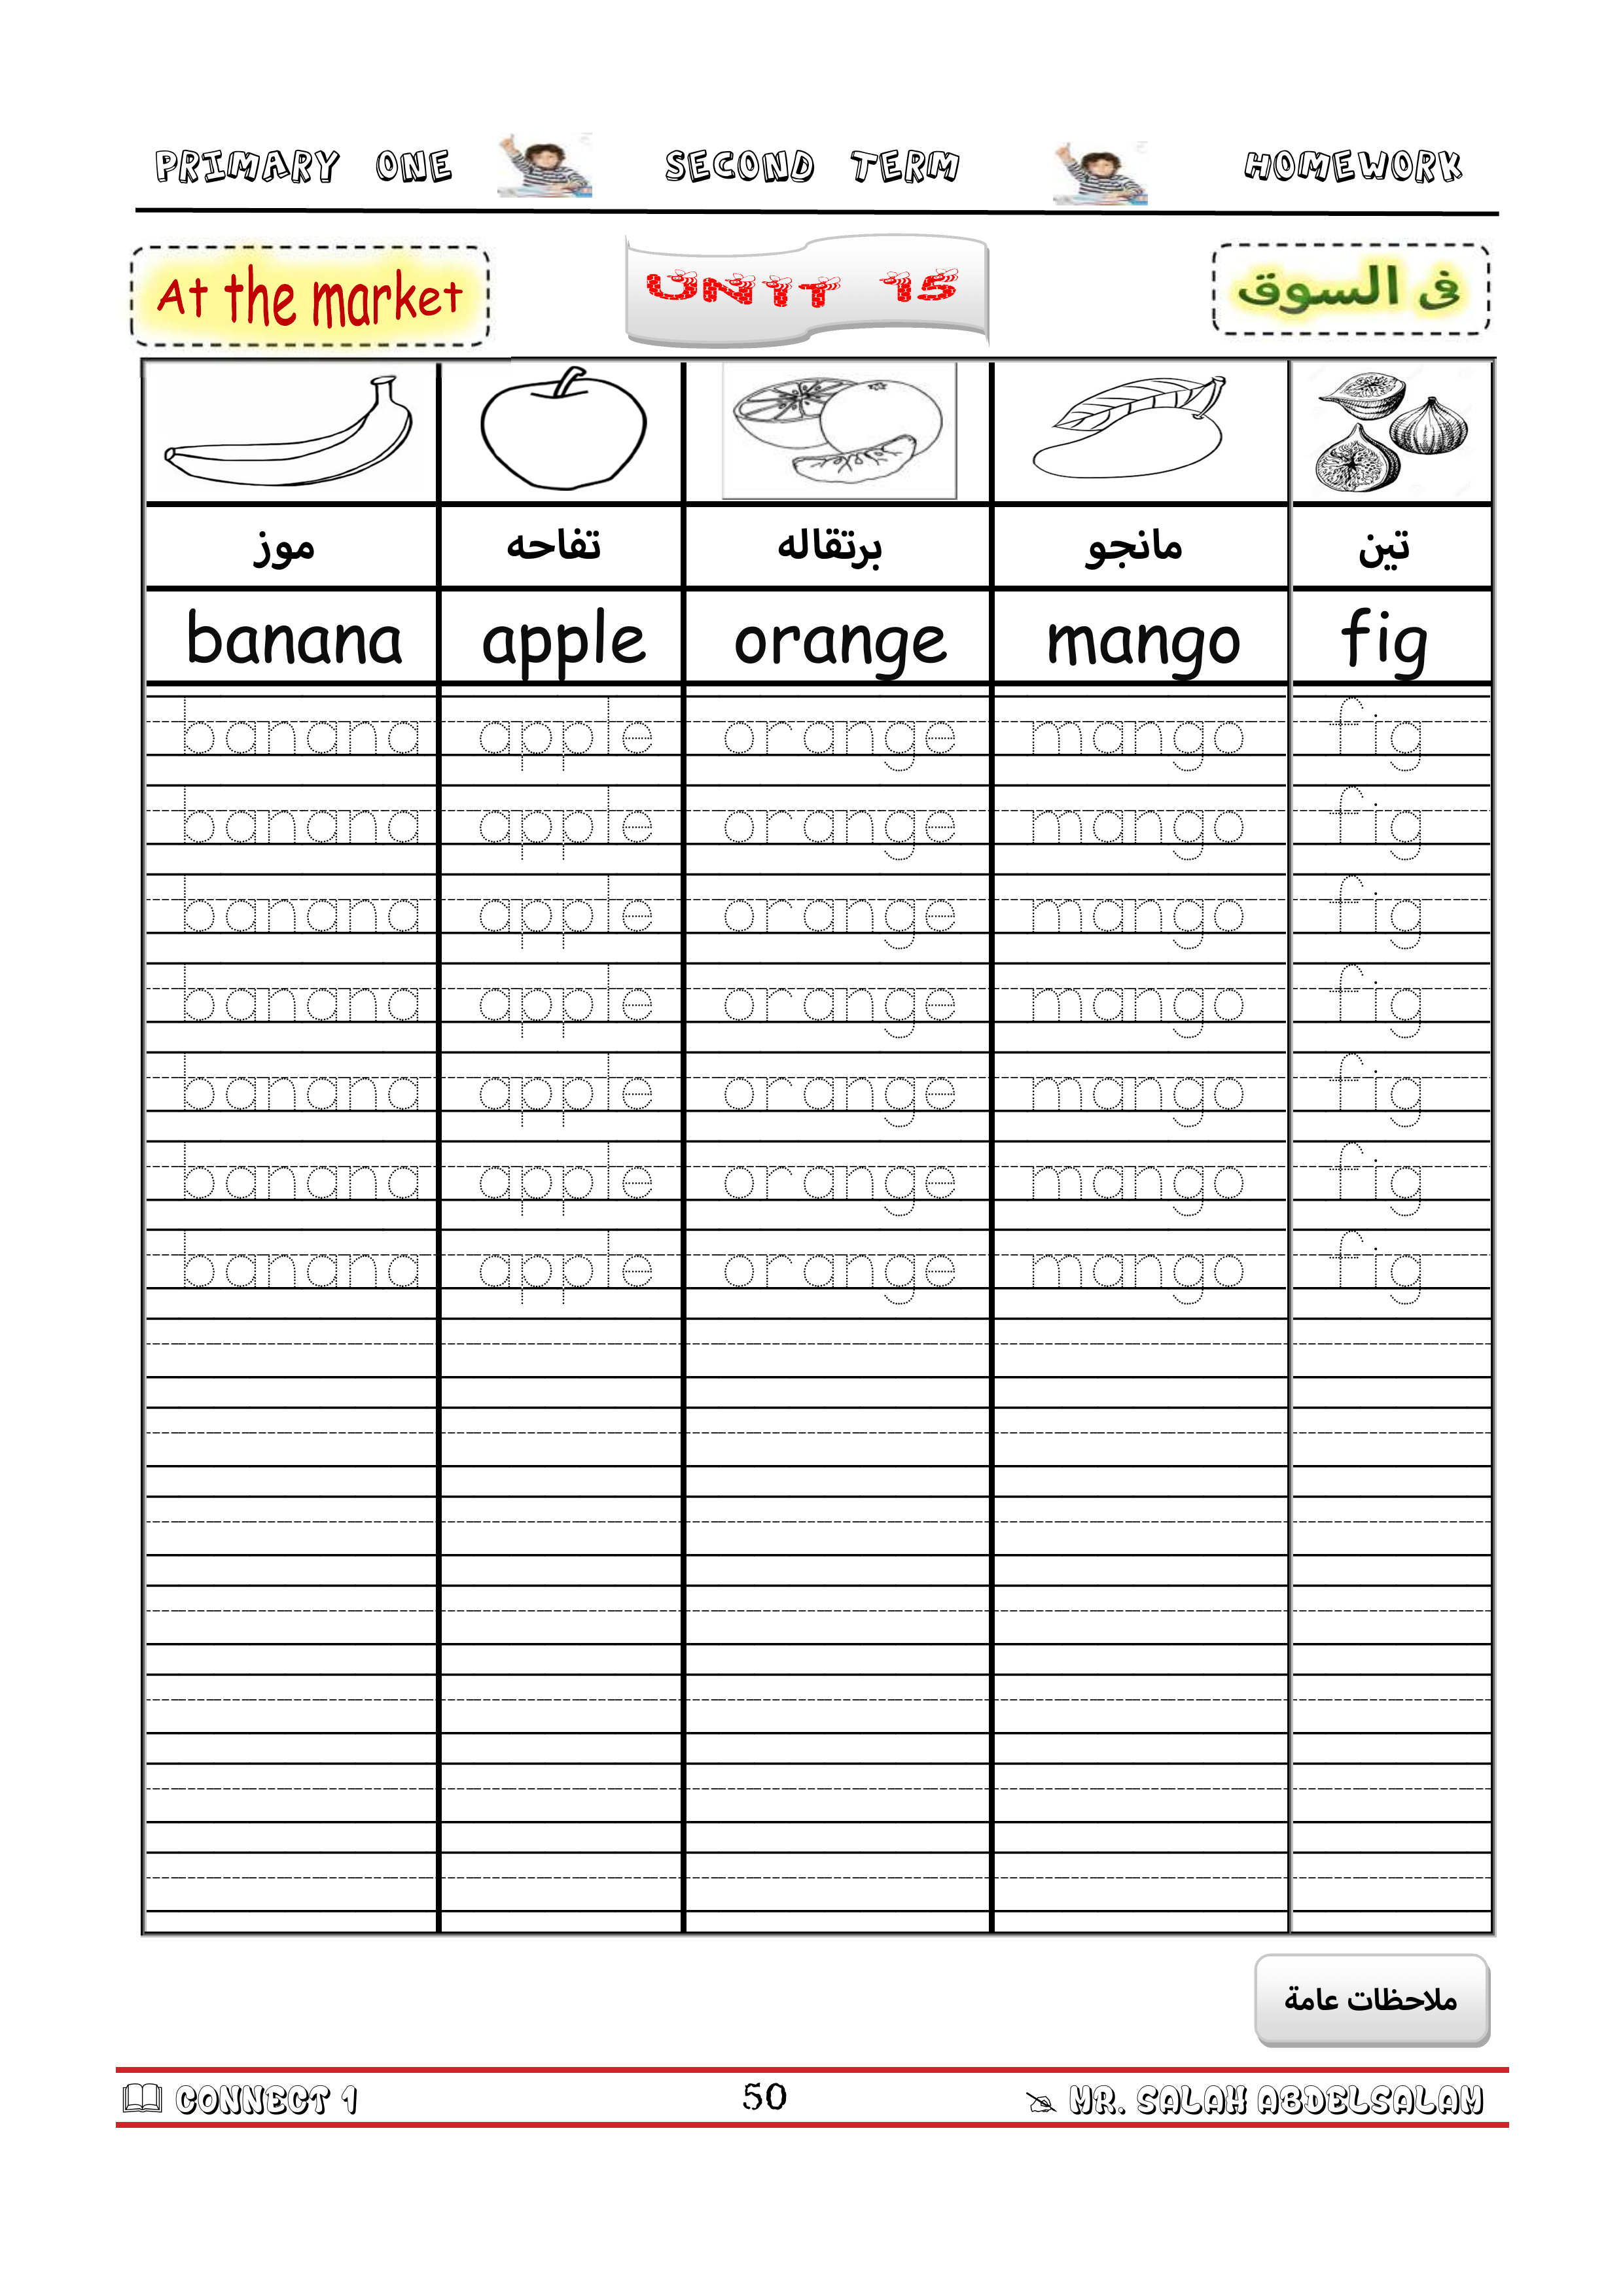 PRIMARY ONE SECOND TERM HOMEWORK
At the market UNIT 15 فى السوق
موز تفاحه برتقاله مانجو تين
banana apple orange mango fig
banana apple orange mango fig
banana apple orange mango fig
banana apple orange mango fig
banana apple orange mango fig
banana apple orange mango fig
banana apple orange mango fig
banana apple orange mango fig
ملاحظات عامة
CONNECT 1 50 MR. SALAH ABDELSALAM